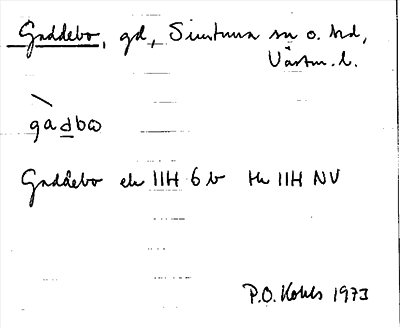 Gaddebo, gd, Simtuna sn o. hd,
Västm. l.
gadbω
Gaddebo ek 11H 6 b tk 11H NV
P.O. 1973